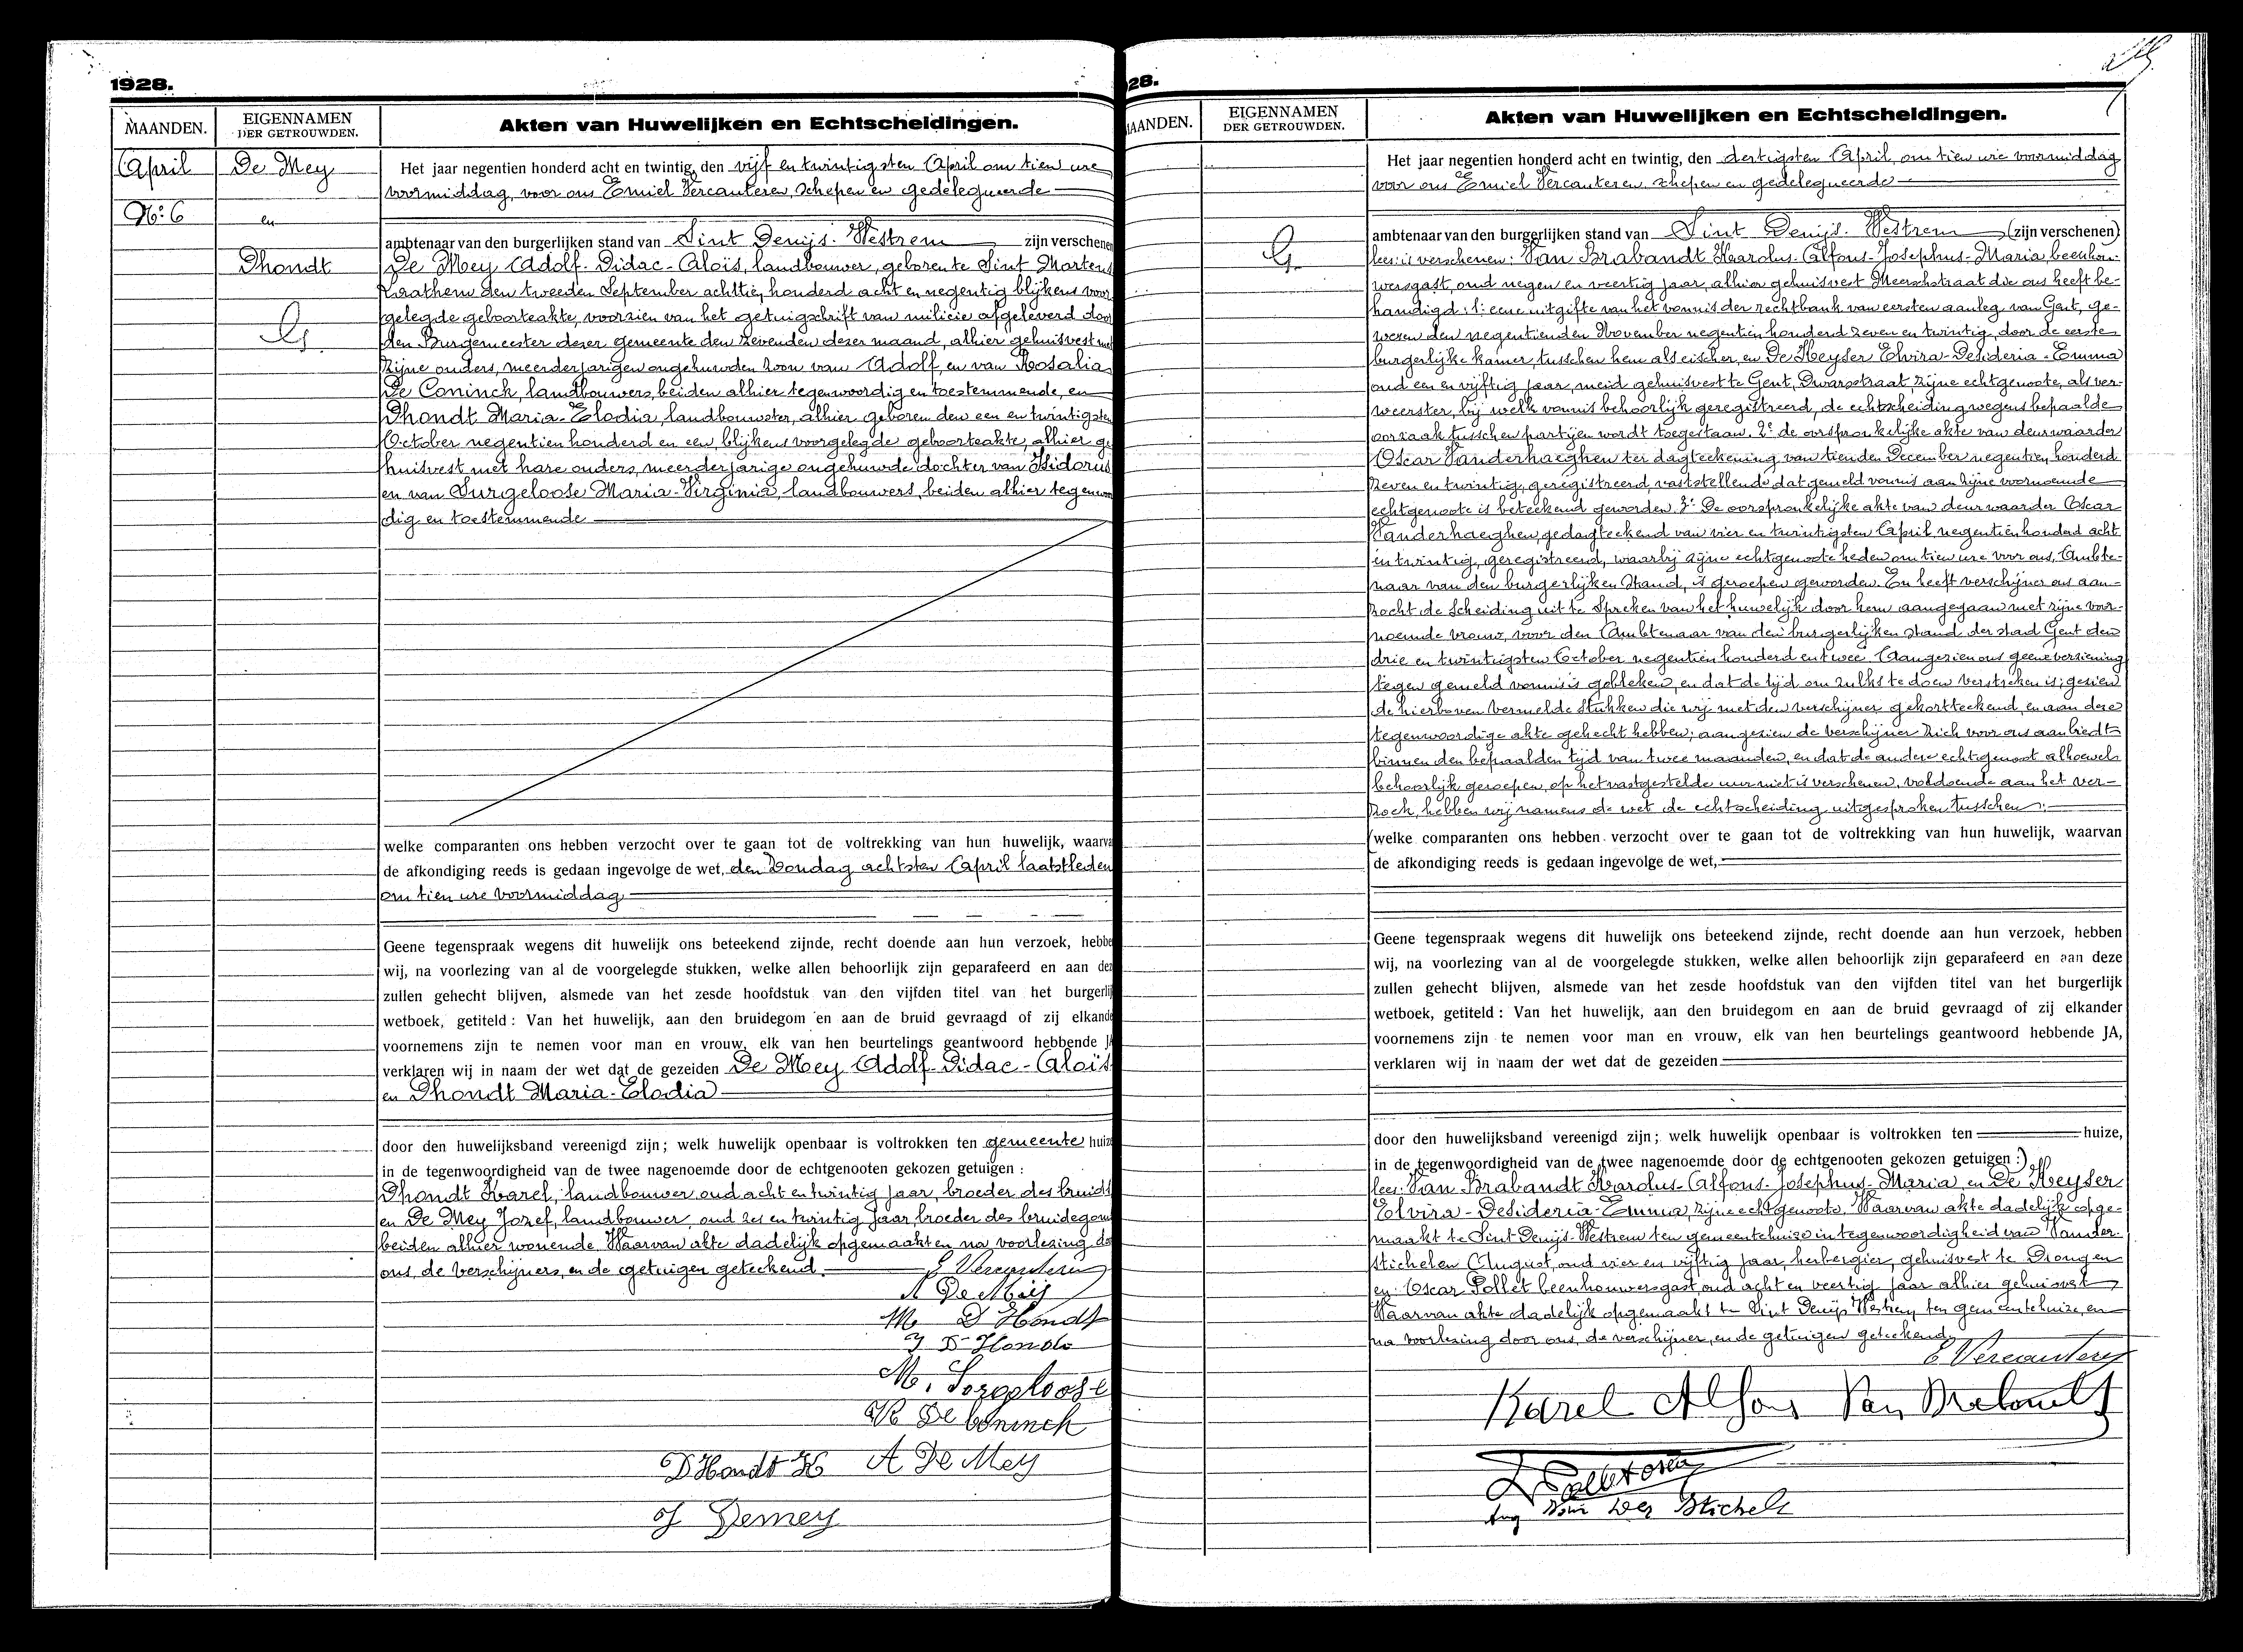 1928.
MAANDEN.
EIGENNAMEN
DER GETROUWDEN.
Akten van Huwelijken en Echtscheidingen.
April
De Mey
No: 6
en
Dhondt
Het jaar negentien honderd acht en twintig, den vijf en twintigsten April om tien ure
voormiddag, voor ons Emiel Vercauteren, schepen en gedelegueerde
ambtenaar van den burgerlijken stand van Sint Denijs-Westrem zijn verschenen
De Mey Adolf-Didac-Aloïs, landbouwer, geboren te Sint Martens
Laathem den tweeden September achttien honderd acht en negentig blijkens voor-
gelegde geboorteakte, voorzien van het getuigschrift van milicie afgeleverd door
den Burgemeester dezer gemeente den zevenden dezer maand, alhier gehuisvest met
zijne ouders, meerderjarigen ongehuwden zoon van Adolf, en van Rosalia
De Coninck, landbouwers, beiden alhier tegenwoordig en toestemmende, en
Dhondt Maria-Elodia, landbouwster, alhier geboren den een en twintigsten
October negentien honderd en een, blijkens voorgelegde geboorteakte, alhier ge
huisvest met hare ouders, meerderjarige ongehuwde dochter van Isidorus
en van Surgeloose Maria-Virginia, landbouwers, beiden alhier tegenwoor
dig en toestemmende
welke comparanten ons hebben verzocht over te gaan tot de voltrekking van hun huwelijk, waarva
de afkondiging reeds is gedaan ingevolge de wet, den Zondag achtsten April laatstleden
om tien ure voormiddag
Geene tegenspraak wegens dit huwelijk ons beteekend zijnde, recht doende aan hun verzoek, hebbe
wij, na voorlezing van al de voorgelegde stukken, welke allen behoorlijk zijn geparafeerd en aan dez
zullen gehecht blijven, alsmede van het zesde hoofdstuk van den vijfden titel van het burgerlij
wetboek, getiteld : Van het huwelijk, aan den bruidegom en aan de bruid gevraagd of zij elkande
voornemens zijn te nemen voor man en vrouw, elk van hen beurtelings geantwoord hebbende JA
verklaren wij in naam der wet dat de gezeiden De Mey Adolf-Didac-Aloïs
en Dhondt Maria-Elodia
door den huwelijksband vereenigd zijn; welk huwelijk openbaar is voltrokken ten gemeente huize
in de tegenwoordigheid van de twee nagenoemde door de echtgenooten gekozen getuigen :
Dhondt Karel, landbouwer, oud acht en twintig jaar, broeder des bruids
en De Mey Jozef, landbouwer, oud zes en twintig jaar, broeder des bruidegoms
beiden alhier wonende. Waarvan akte dadelijk opgemaakt en na voorlezing do
ons, de verschijners, en de getuigen geteekend.
E Vercauteren
A De Mey
M D'Hondt
I D'Hondt
M. Sorgeloose
R De Coninck
D'Hondt K A De Mey
J Demey
28.
MAANDEN.
EIGENNAMEN
DER GETROUWDEN.
Akten van Huwelijken en Echtscheidingen.
Het jaar negentien honderd acht en twintig, den dertigsten April, om tien ure voormiddag
voor ons Emiel Vercauteren, schepen en gedelegueerde
ambtenaar van den burgerlijken stand van Sint Denijs-Westrem (zijn verschenen)
lees: is verschenen: Van Brabandt Karolus-Alfons-Josephus-Maria, beenhou-
wersgast, oud negen en veertig jaar, alhier gehuisvest Meerschstraat die ons heeft be-
handigd: 1: eene uitgifte van het vonnis der rechtbank van eersten aanleg van Gent, ge-
wezen den negentienden November negentien honderd zeven en twintig, door de eerste
burgerlijke kamer, tusschen hem als eischer, en De Keyser Elvira-Desideria-Emma
oud een en vijftig jaar, meid gehuisvest te Gent, Dwarsstraat, zijne echtgenoote, als ver-
weerster, bij welk vonnis behoorlijk geregistreerd, de echtscheiding wegens bepaalde
oorzaak tusschen partijen wordt toegestaan. 2: de oorspronkelijke akte van deurwaarder
Oscar Vanderhaeghen ter dagteekening van tienden December negentien honderd
zeven en twintig, geregistreerd, vaststellende dat gemeld vonnis aan zijne voornoemde
echtgenoote is beteekend geworden. 3: De oorspronkelijke akte van deurwaarder Oscar
Vanderhaeghen, gedagteekend van vier en twintigsten April negentien honderd acht
en twintig, geregistreerd, waarbij zijne echtgenoote heden om tien ure voor ons, Ambte-
naar van den burgerlijken stand, is geroepen geworden. En heeft verschijner ons aan-
zocht de scheiding uit te spreken van het huwelijk door hem aangegaan met zijne voor-
noemde vrouw, voor den Ambtenaar van den burgerlijken stand der stad Gent den
drie en twintigsten October negentien honderd en twee. Aangezien ons geene verziening
tegen gemeld vonnis is gebleken, en dat de tijd om zulks te doen verstreken is; gezien
de hierboven vermelde stukken die wij met den verschijner gekortteekend, en aan deze
tegenwoordige akte gehecht hebben; aangezien de verschijner zich voor ons aanbiedt
binnen den bepaalden tijd van twee maanden, en dat de andere echtgenoot alhoewel
behoorlijk geroepen, op het vastgestelde uur niet is verschenen, voldoende aan het ver-
zoek, hebben wij namens de wet de echtscheiding uitgesproken tusschen:
(welke comparanten ons hebben verzocht over te gaan tot de voltrekking van hun huwelijk, waarvan
de afkondiging reeds is gedaan ingevolge de wet,
Geene tegenspraak wegens dit huwelijk ons beteekend zijnde, recht doende aan hun verzoek, hebben
wij, na voorlezing van al de voorgelegde stukken, welke allen behoorlijk zijn geparafeerd en aan deze
zullen gehecht blijven, alsmede van het zesde hoofdstuk van den vijfden titel van het burgerlijk
wetboek, getiteld : Van het huwelijk, aan den bruidegom en aan de bruid gevraagd of zij elkander
voornemens zijn te nemen voor man en vrouw, elk van hen beurtelings geantwoord hebbende JA,
verklaren wij in naam der wet dat de gezeiden
door den huwelijksband vereenigd zijn; welk huwelijk openbaar is voltrokken ten huize,
in de tegenwoordigheid van de twee nagenoemde door de echtgenooten gekozen getuigen :)
lees: Van Brabandt Karolus-Alfons-Josephus-Maria, en De Keyser
Elvira-Desideria-Emma, zijne echtgenoote. Waarvan akte dadelijk opge-
maakt te Sint Denijs-Westrem ten gemeentehuize in tegenwoordigheid van Vander-
stichelen August, oud vier en vijftig jaar, herbergier, gehuisvest te Drongen
en Oscar Pollet beenhouwersgast, oud acht en veertig jaar alhier gehuisvest
Waarvan akte dadelijk opgemaakt te Sint Denijs Westrem ten gemeentehuize, en
na voorlezing door ons, de verschijner, en de getuigen geteekend,
E Vercauteren
Karel Alfons Van Brabandt
Pollet Oscar
Aug Van der Stichele